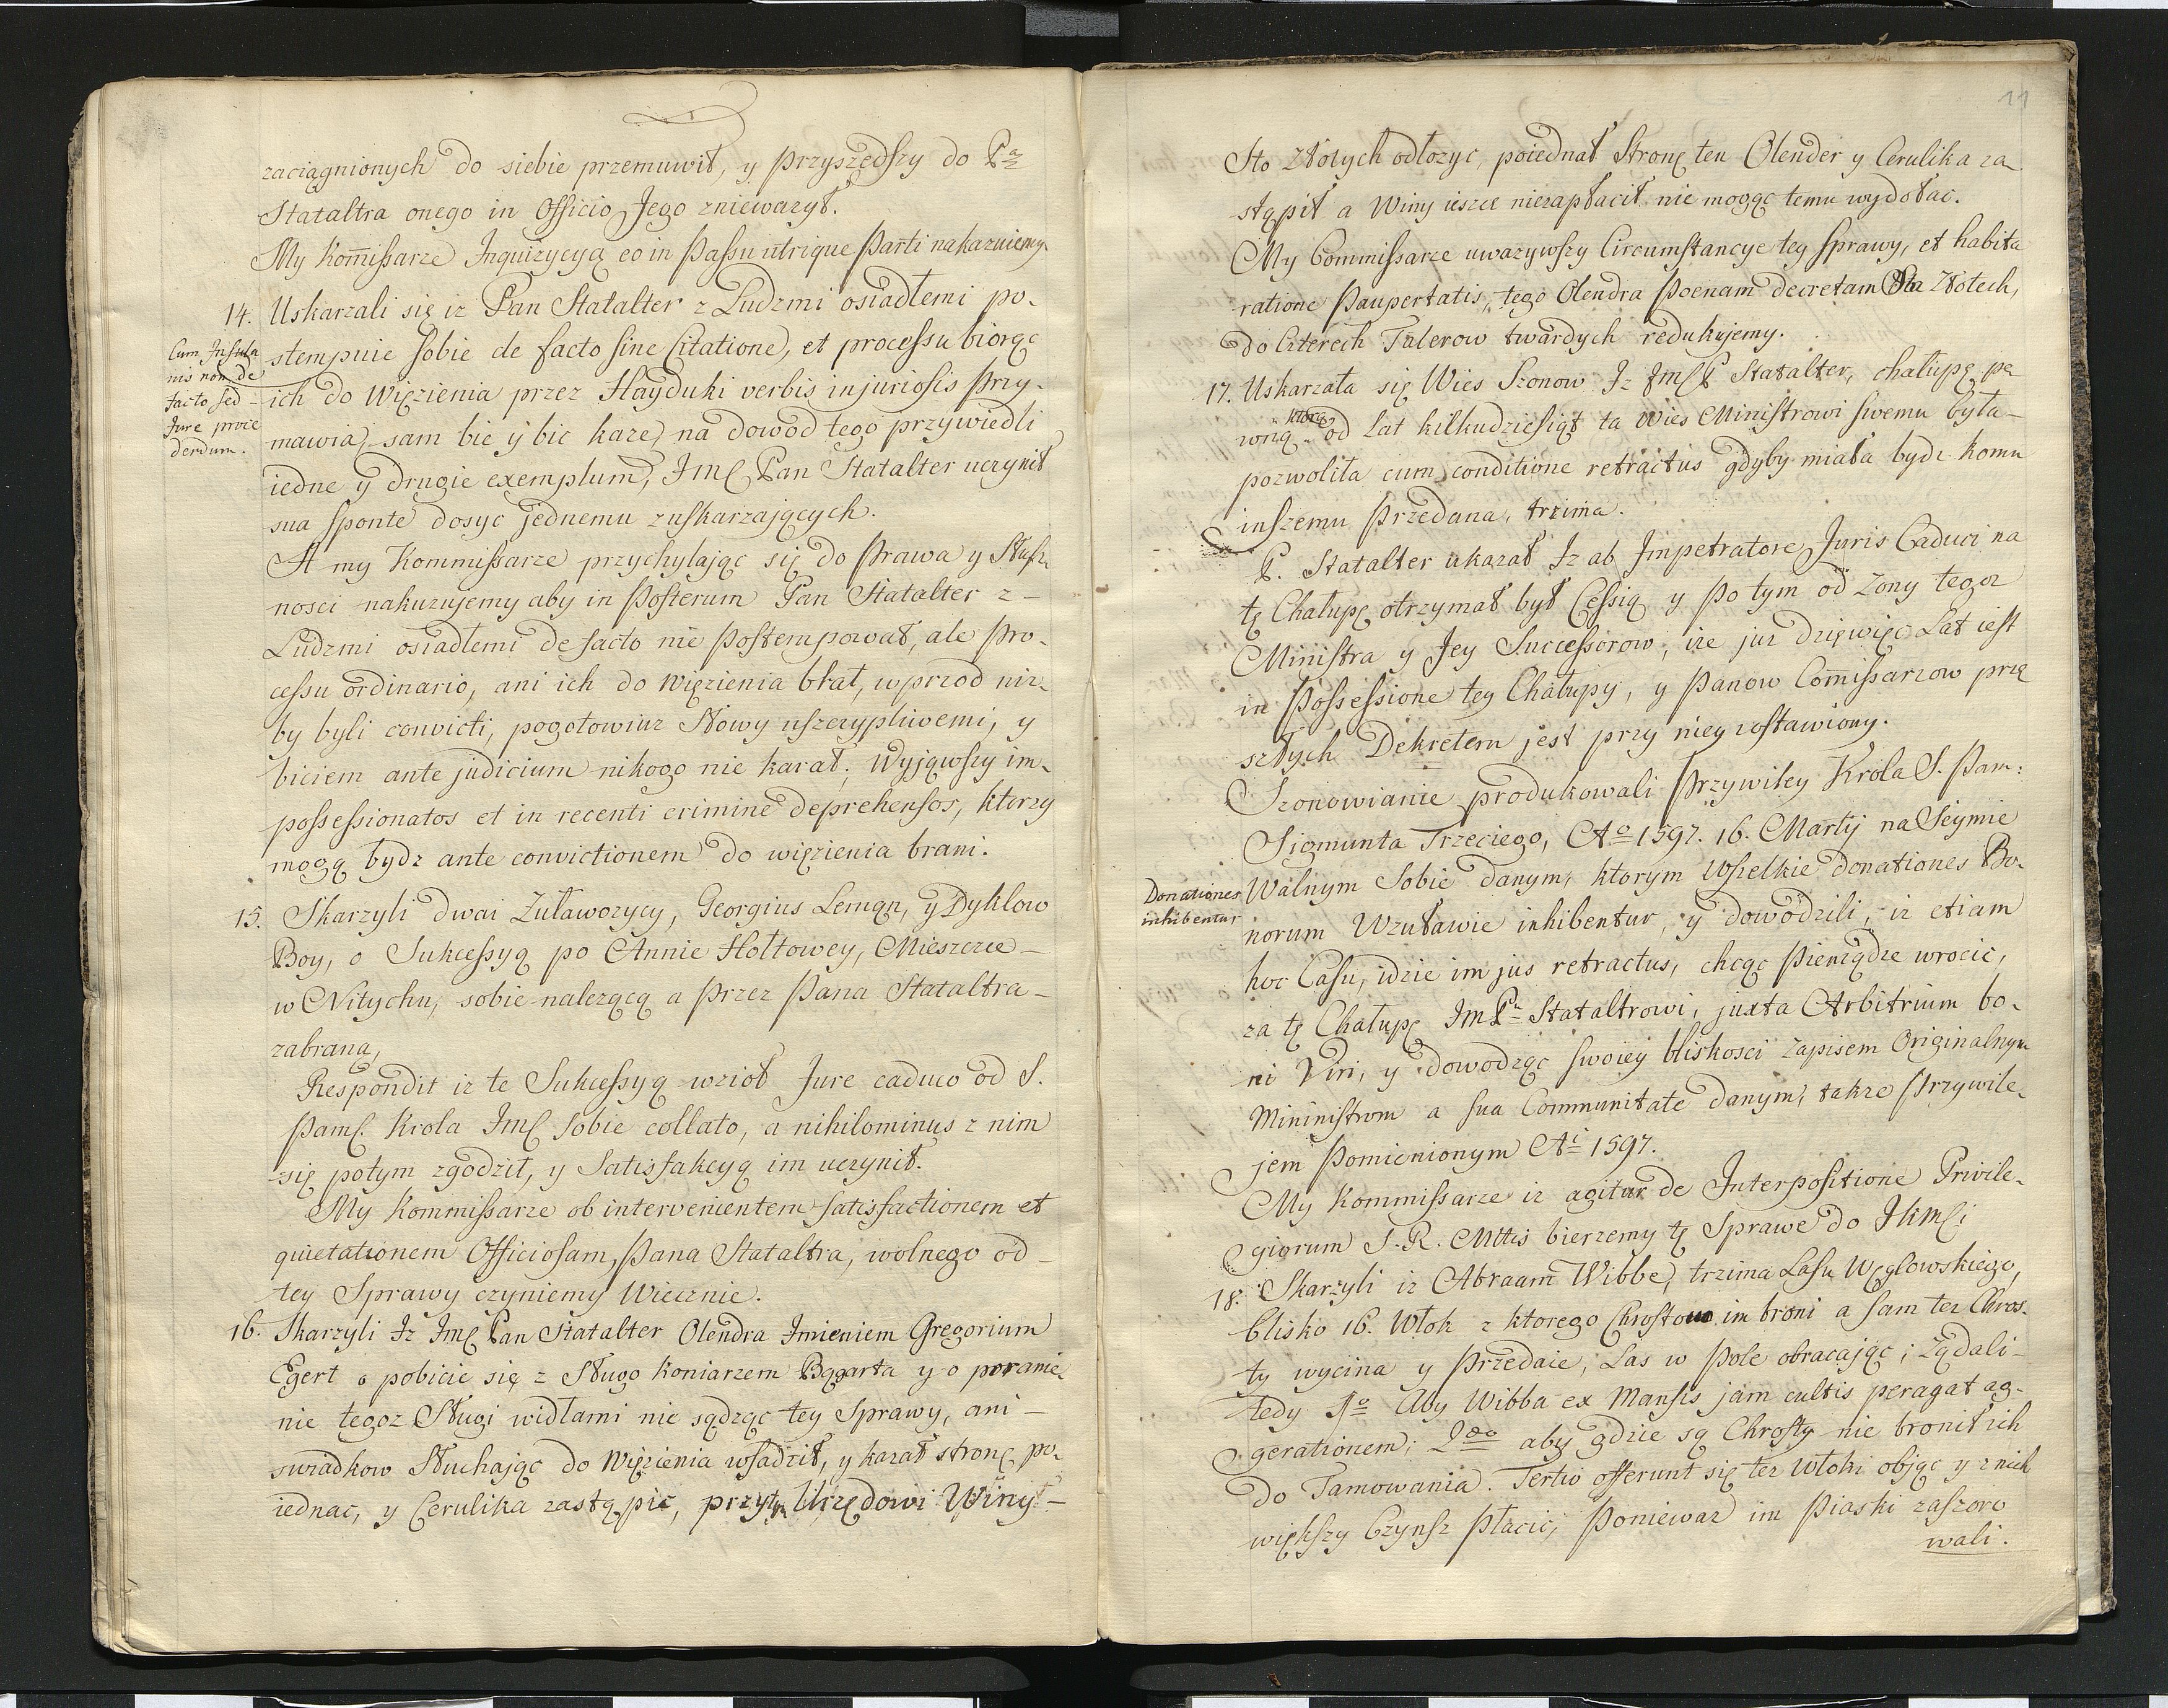 zaciągnionych do siebie przemuwił, y przyszedszy do Pa
Stataltra onego in Officio Jego zniewarył.
My Kom̃issarze Inquizycyą eo in Passu utrique Parti nakazuiemy
14. Uskarzali się iz Pan Statalter z Ludzmi osiadłemi po-
Cum Insula
nis non de
facto sed
Jure proce
dendum.
stempuie sobie de facto sine Citatione, et processu biorąc
ich do Więzienia przez Hayduki verbis injuriosis przy-
mawia sam bie y bic każe, na dowod tego przywiedli
iedne y drugie exemplum, Jmc Pan Statalter uczynił
sua sponte dosyc jednemu z uskarzających.
A my Kommissarze przychylając się do Prawa y Słusz
nosci nakuzujemy aby in Posterum Pan Statalter z -
Ludzmi osiadłemi de facto nie Postempował, ale Pro-
cessu ordinario, ani ich do więzienia brał, wprzod niz
by byli convicti, pogotowiuz Słowy uszczypliwemi, y
biciem ante judicium nikogo nie karał; Wyjąwszy im-
possessionatos et in recenti crimine deprehensos, ktorzy
mogą bydz ante convictionem do więzienia brani.
15. Skarzyli dwai Zuławczycy, Georgius Leman, y Dyklow
Boy, o Sukcessyą po Annie Hołtowey, Mieszcze -
w Nitychu, sobie nalezącą a przez Pana Stataltra -
zabraną,
Respondit iz te Sukcessyą wzioł Jure caduco od S.
Pamc. Krola Jmc sobie collato, a nihilominus z nim
się potym zgodził, y Satisfakcyą im uczynił.
My Kommissarze ob intervenientem satisfactionem et
quietationem Officiosam, Pana Stataltra, wolnego od -
tey Sprawy czyniemy Wiecznie.
16. Skarzyli Iz Jmc Pan Statalter Olendra Imieniem Gregorium
Egert o pobicie się z Sługo koniarzem Bągarta y o poranie
nie tegoz Sługi widłami nie sądząc tey Sprawy, ani -
swiadkow Słuchając do Więzienia wsadził, y kazał stronę po-
iednac, y Cerulika zastąpic, przytym Urzędowi Winy -
11
Sto Złotych odłozyc, poiednał Stronę ten Olender y Cerulika za
stąpił a Winy ieszcz niezapłacił nie mogąc temu wydołac.
My Commissarze uwazywszy Circumstancye tey sprawy, et habita
ratione Paupertatis, tego Olendra Poenam decretam Sta Złotech,
do Czterech Talerow twardych redukujemy.
17. Uskarzała się Wies Szonow Iz Jmc P Statalter, chałupę pe
wną ktorą od Lat kilkudziesiąt ta Wies Ministrowi swemu była -
pozwoliła cum conditione retractus gdyby miała bydz komu
inszemu Przedana, trzima.
P. Statalter ukazał Iz ab Impetratore Juris Caduci na
tę Chałupę otrzymał był Cessią y Po tym od Zony tegoz
Ministra y Jey Successorow, ize juz dzięwięc Lat iest
in Possessione tey Chałupy, y Panow Com̃issarzow prze
szłych Dekretem jest przy niey zostawiony.
Szonowianie produkowali Przywiley Krola S. Pam:
Sigmunta Trzeciego, Ao 1597. 16. Martij na Seymie
Donationes
inhibentur
Walnym Sobie danym, ktorym Wszelkie donationes Bo-
norum Wzuławie inhibentur, y dowodzili, iz etiam
hoc Casu, idzie im jus retractus, chcąc Pieniądze wrocic,
za tę Chałupę Jm Pu Stataltrowi, juxta Arbitrium bo-
ni Viri, y dowodząc swoiey bliskosci Zapisem Originalnym
Mininistrom a sua Communitate danym, takze Przywile-
jem Pomienionym Ai 1597.
My Kommissarze iz agitur de Interpositione Privile-
giorum S. R. Mttis bierzemy tę Sprawe do Jkmci
18. Skarzyli iz Abraam Wibbe, trzima Lasu Węglowskiego,
blisko 16. Włok z ktorego Chrostow im broni a sam tez Chros-
ty wycina y Przedaie, Las w Pole obracając; Ządali -
tedy 1o Aby Wibba ex Mansis jam cultis peragat ag-
gerationem; 2do aby gdzie są Chrosty nie bronił ich
do Tamowania. Tertio offerunt się tez Włoki objąc y z nich
większy Czynsz Płacic, Poniewaz im Piaski zaszoro
wali.